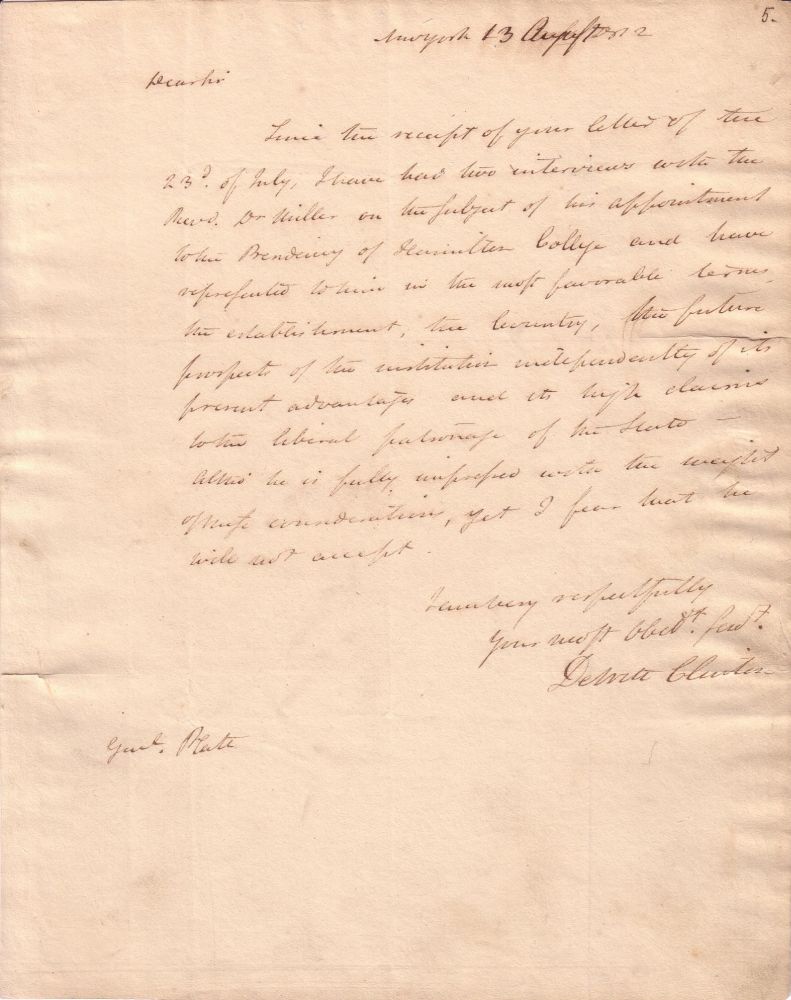 5.
New York 13 August 1812
Dear Sir
Since the receipt of your letter of the
23d. of July, I have had two interviews with the
Revd. Dr Miller on the subject of his appointment
to the Presidency of Hamilton College and have
represented to him in the most favorable terms
the establishment, the Country, the future
prospects of the institution independently of its
present advantages and its high claims
to the liberal patronage of the State –
Altho' he is fully impressed with the weight
of these considerations, yet I fear that he
will not accept.
I am very respectfully
Your most Obedt. Servt.
DeWitt Clinton
Genl. Platt